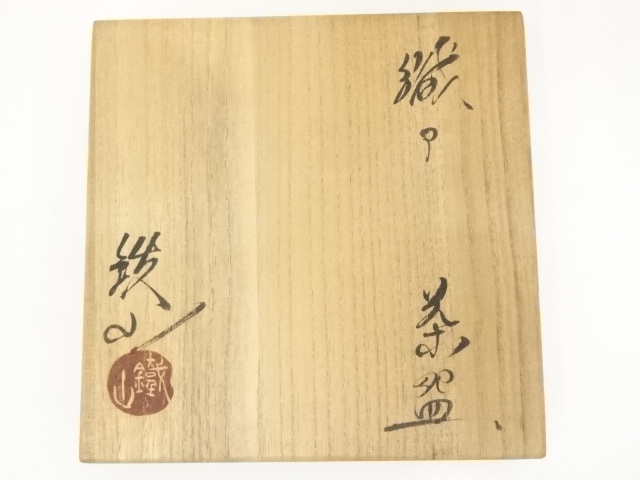 織部
茶盌
鉄山
鐵山